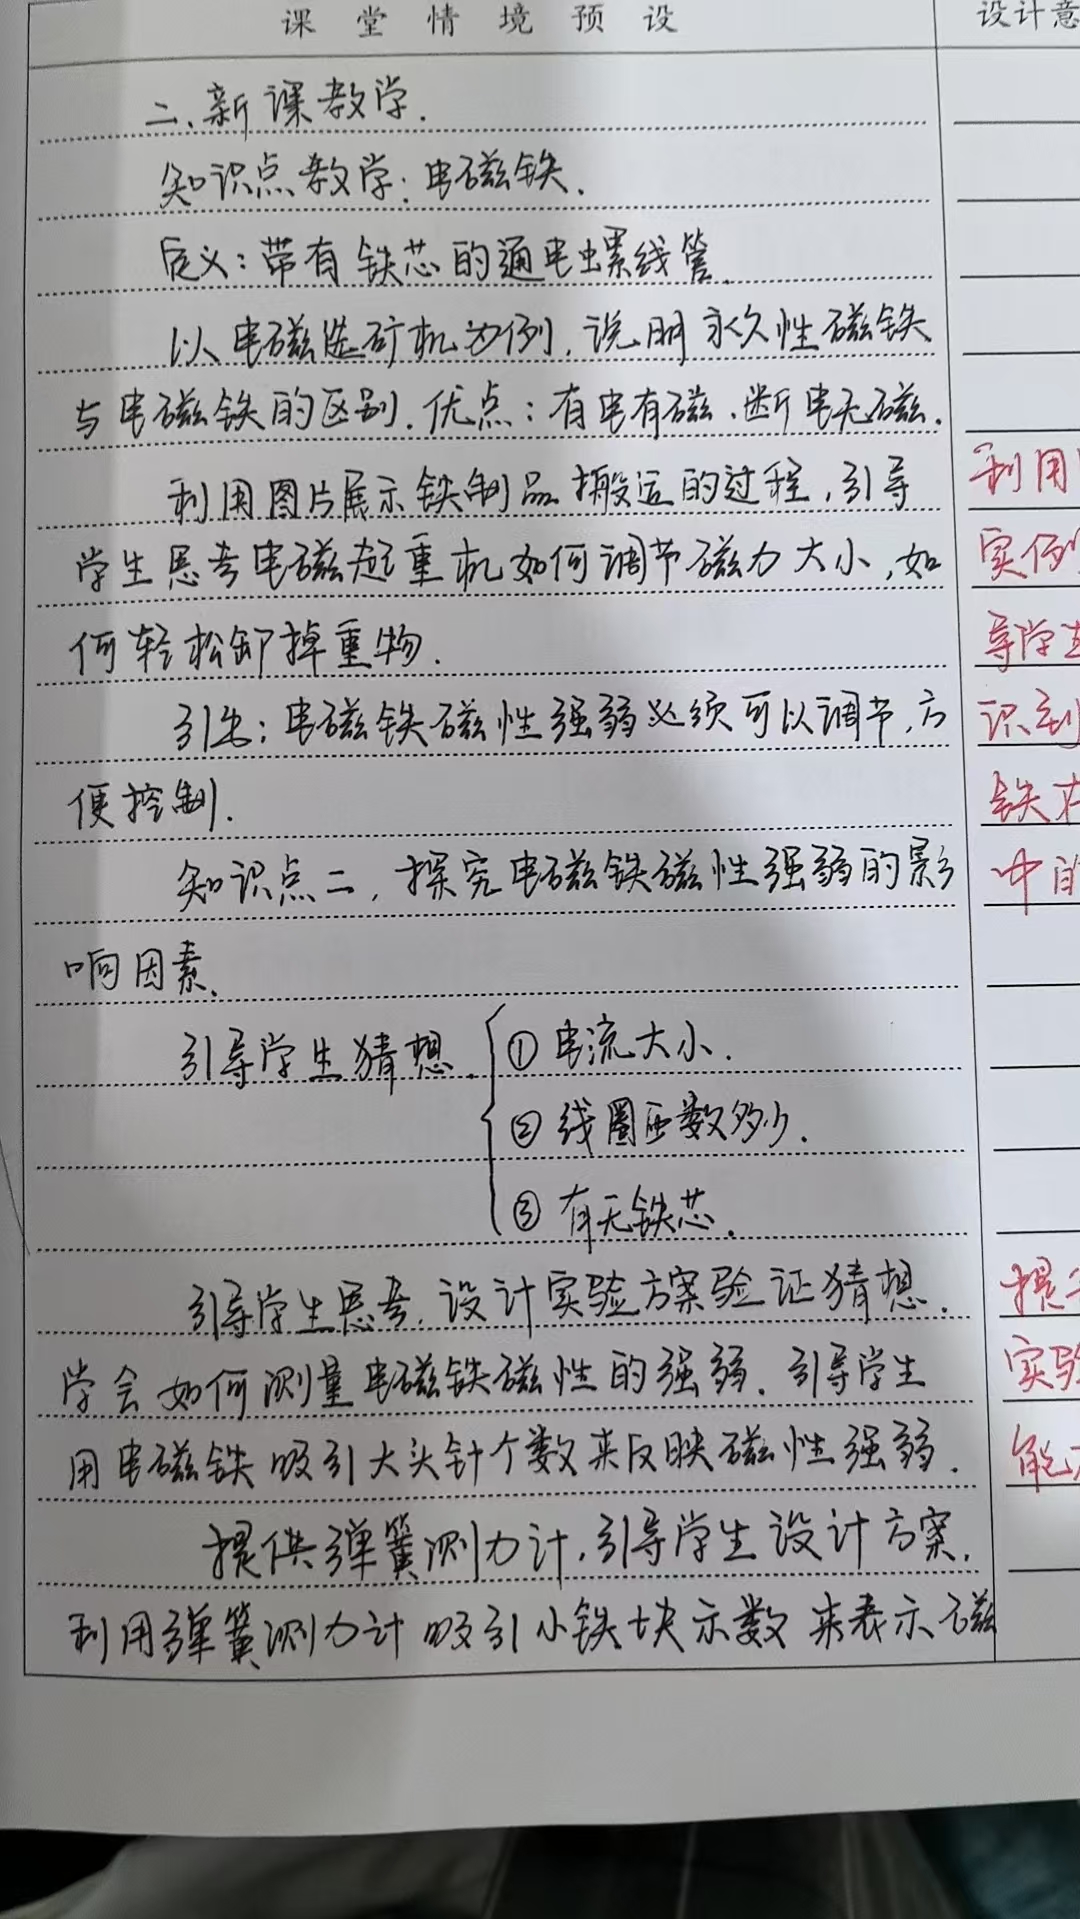 课堂情境预设
设计意
二、新课教学.
知识点教学:电磁铁.
定义:带有铁芯的通电螺线管.
以电磁选矿机为例,说明永久性磁铁
与电磁铁的区别.优点:有电有磁、断电无磁.
利用图片展示铁制品搬运的过程,引导
学生思考电磁起重机如何调节磁力大小,如
何轻松卸掉重物.
引出:电磁铁磁性强弱必须可以调节,方
便控制.
知识点二,探究电磁铁磁性强弱的影
响因素.
引导学生猜想.
①电流大小.
②线圈匝数多少.
③有无铁芯.
引导学生思考,设计实验方案验证猜想.
学会如何测量电磁铁磁性的强弱.引导学生
用电磁铁吸引大头针个数来反映磁性强弱.
提供弹簧测力计,引导学生设计方案,
利用弹簧测力计吸引小铁块示数来表示磁
利用
实例
导学生
识到
铁在
中的
提
实验
能